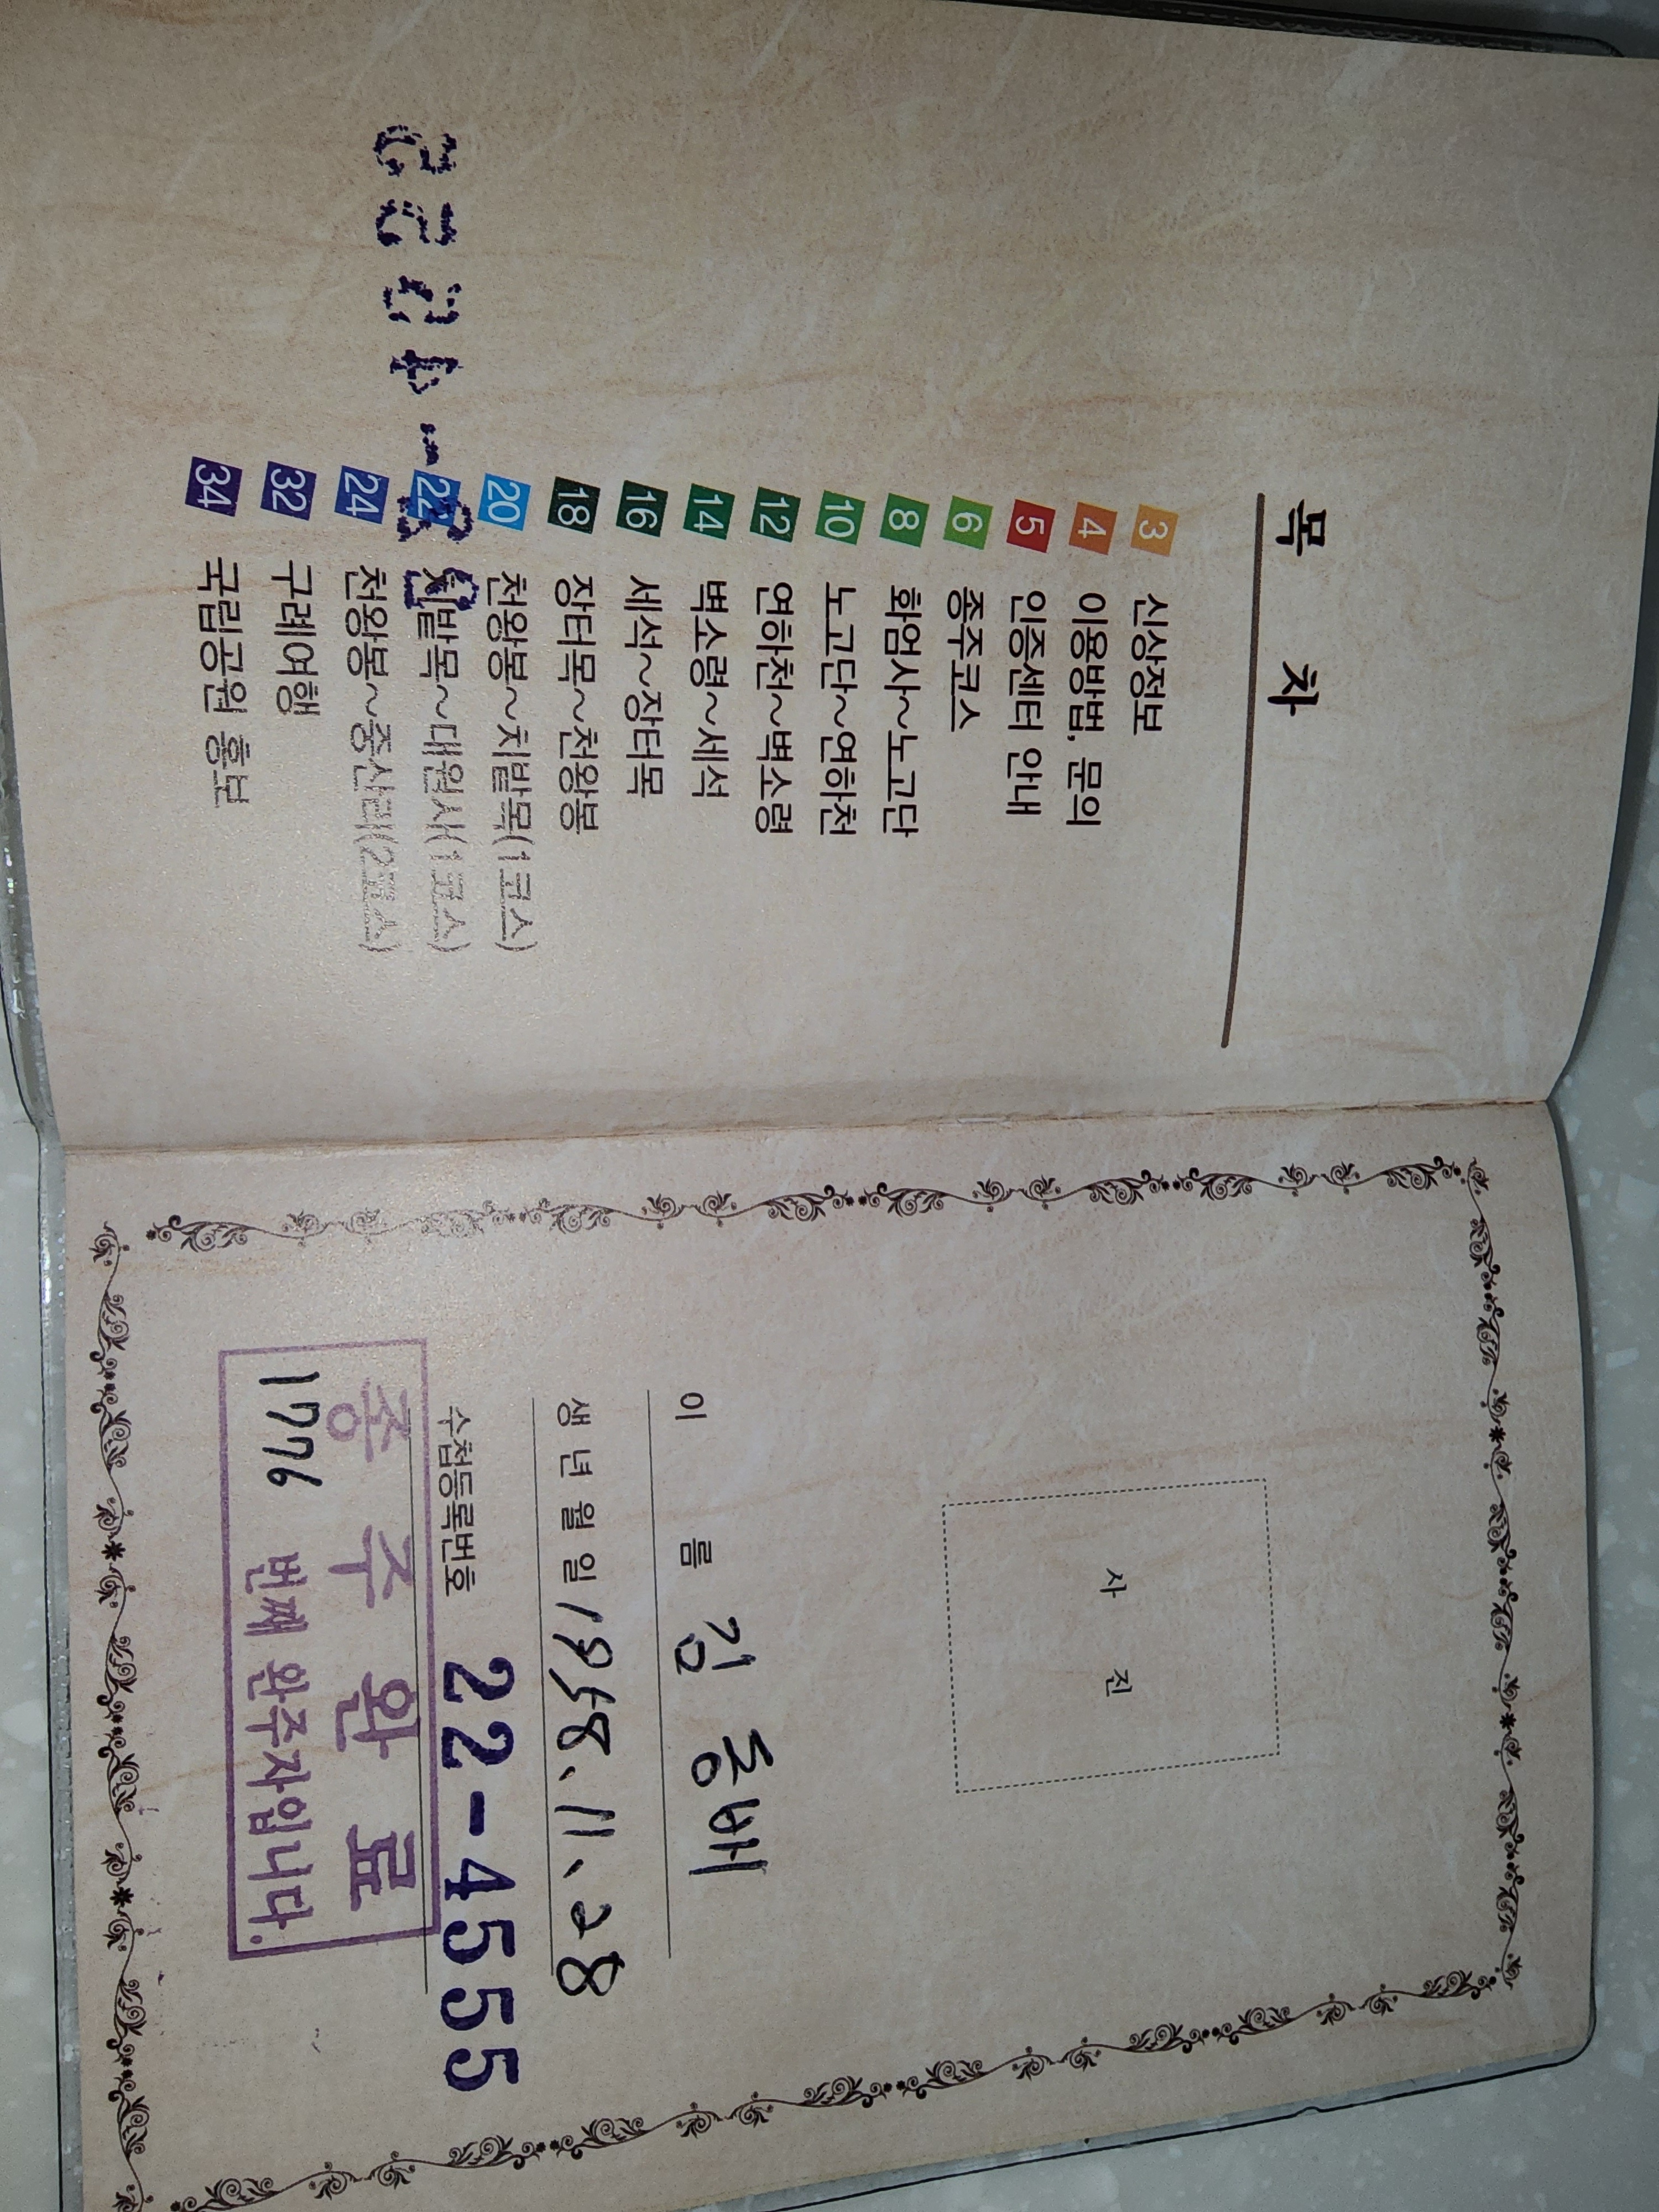 목 차
3 신상정보
4 이용방법, 문의
5 인증센터 안내
6 종주코스
8 화엄사~노고단
10 노고단~연하천
12 연하천~벽소령
14 벽소령~세석
16 세석~장터목
18 장터목~천왕봉
20 천왕봉~치밭목(1코스)
22 치밭목~대원사(1코스)
24 천왕봉~중산리(2코스)
32 구례여행
34 국립공원 홍보
사 진
이 름 김 동배
생 년 월 일 1958.11.28
수첩등록번호 22-4555
종 주 완 료
1776 번째 완주자입니다.